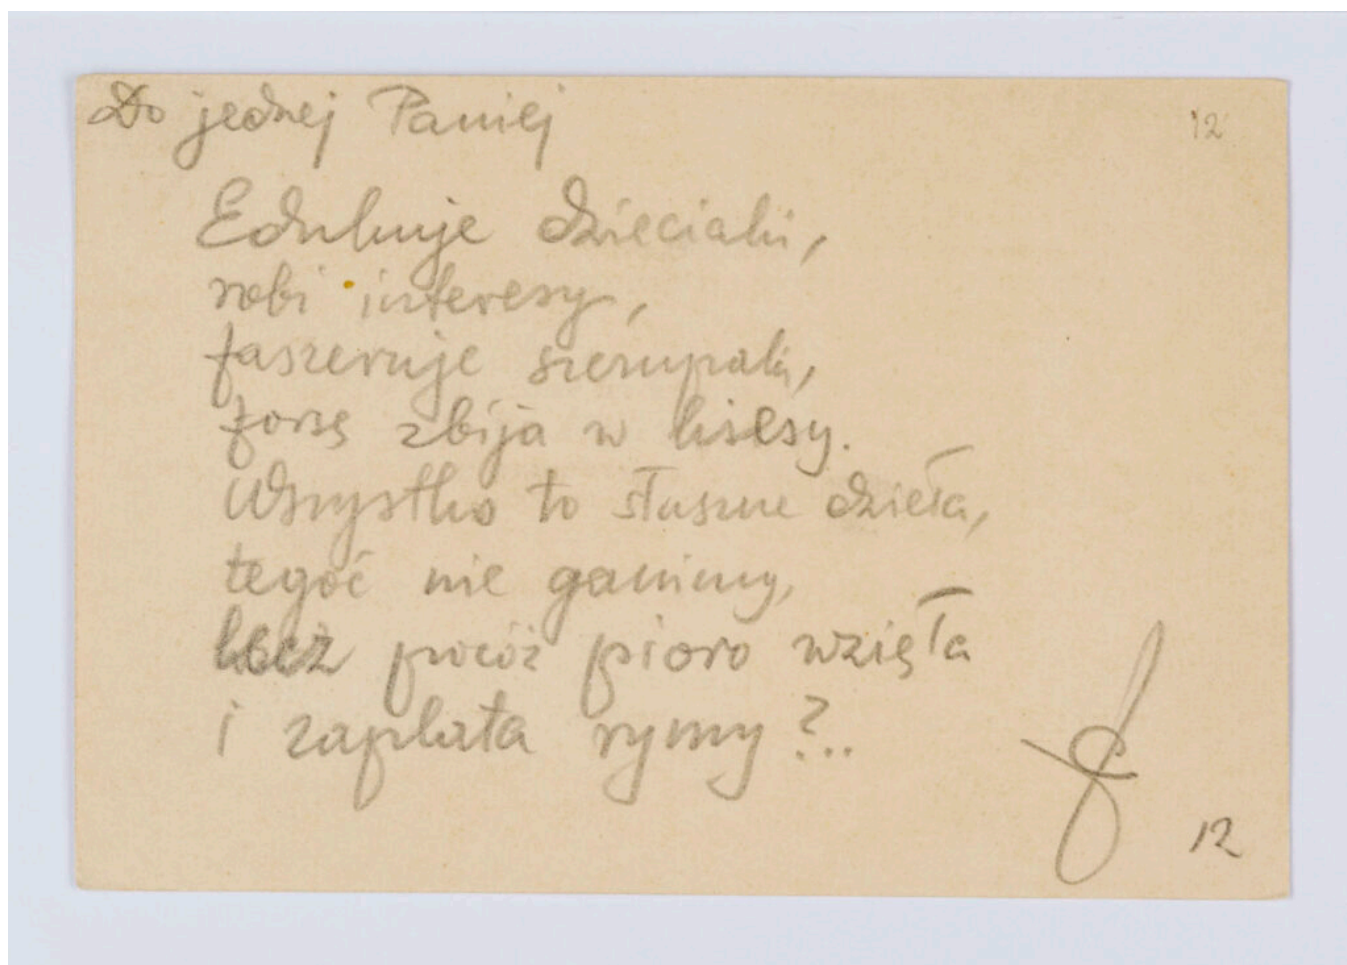 Do jednej Paniej
12
Edukuje dzieciaki,
robi interesy,
faszeruje szczupaki,
forsę zbija w kiesy.
Wszystko to słuszne dzieła,
tegoć nie ganimy,
lecz pocóż pioro wzięła
i zaplata rymy?..
12